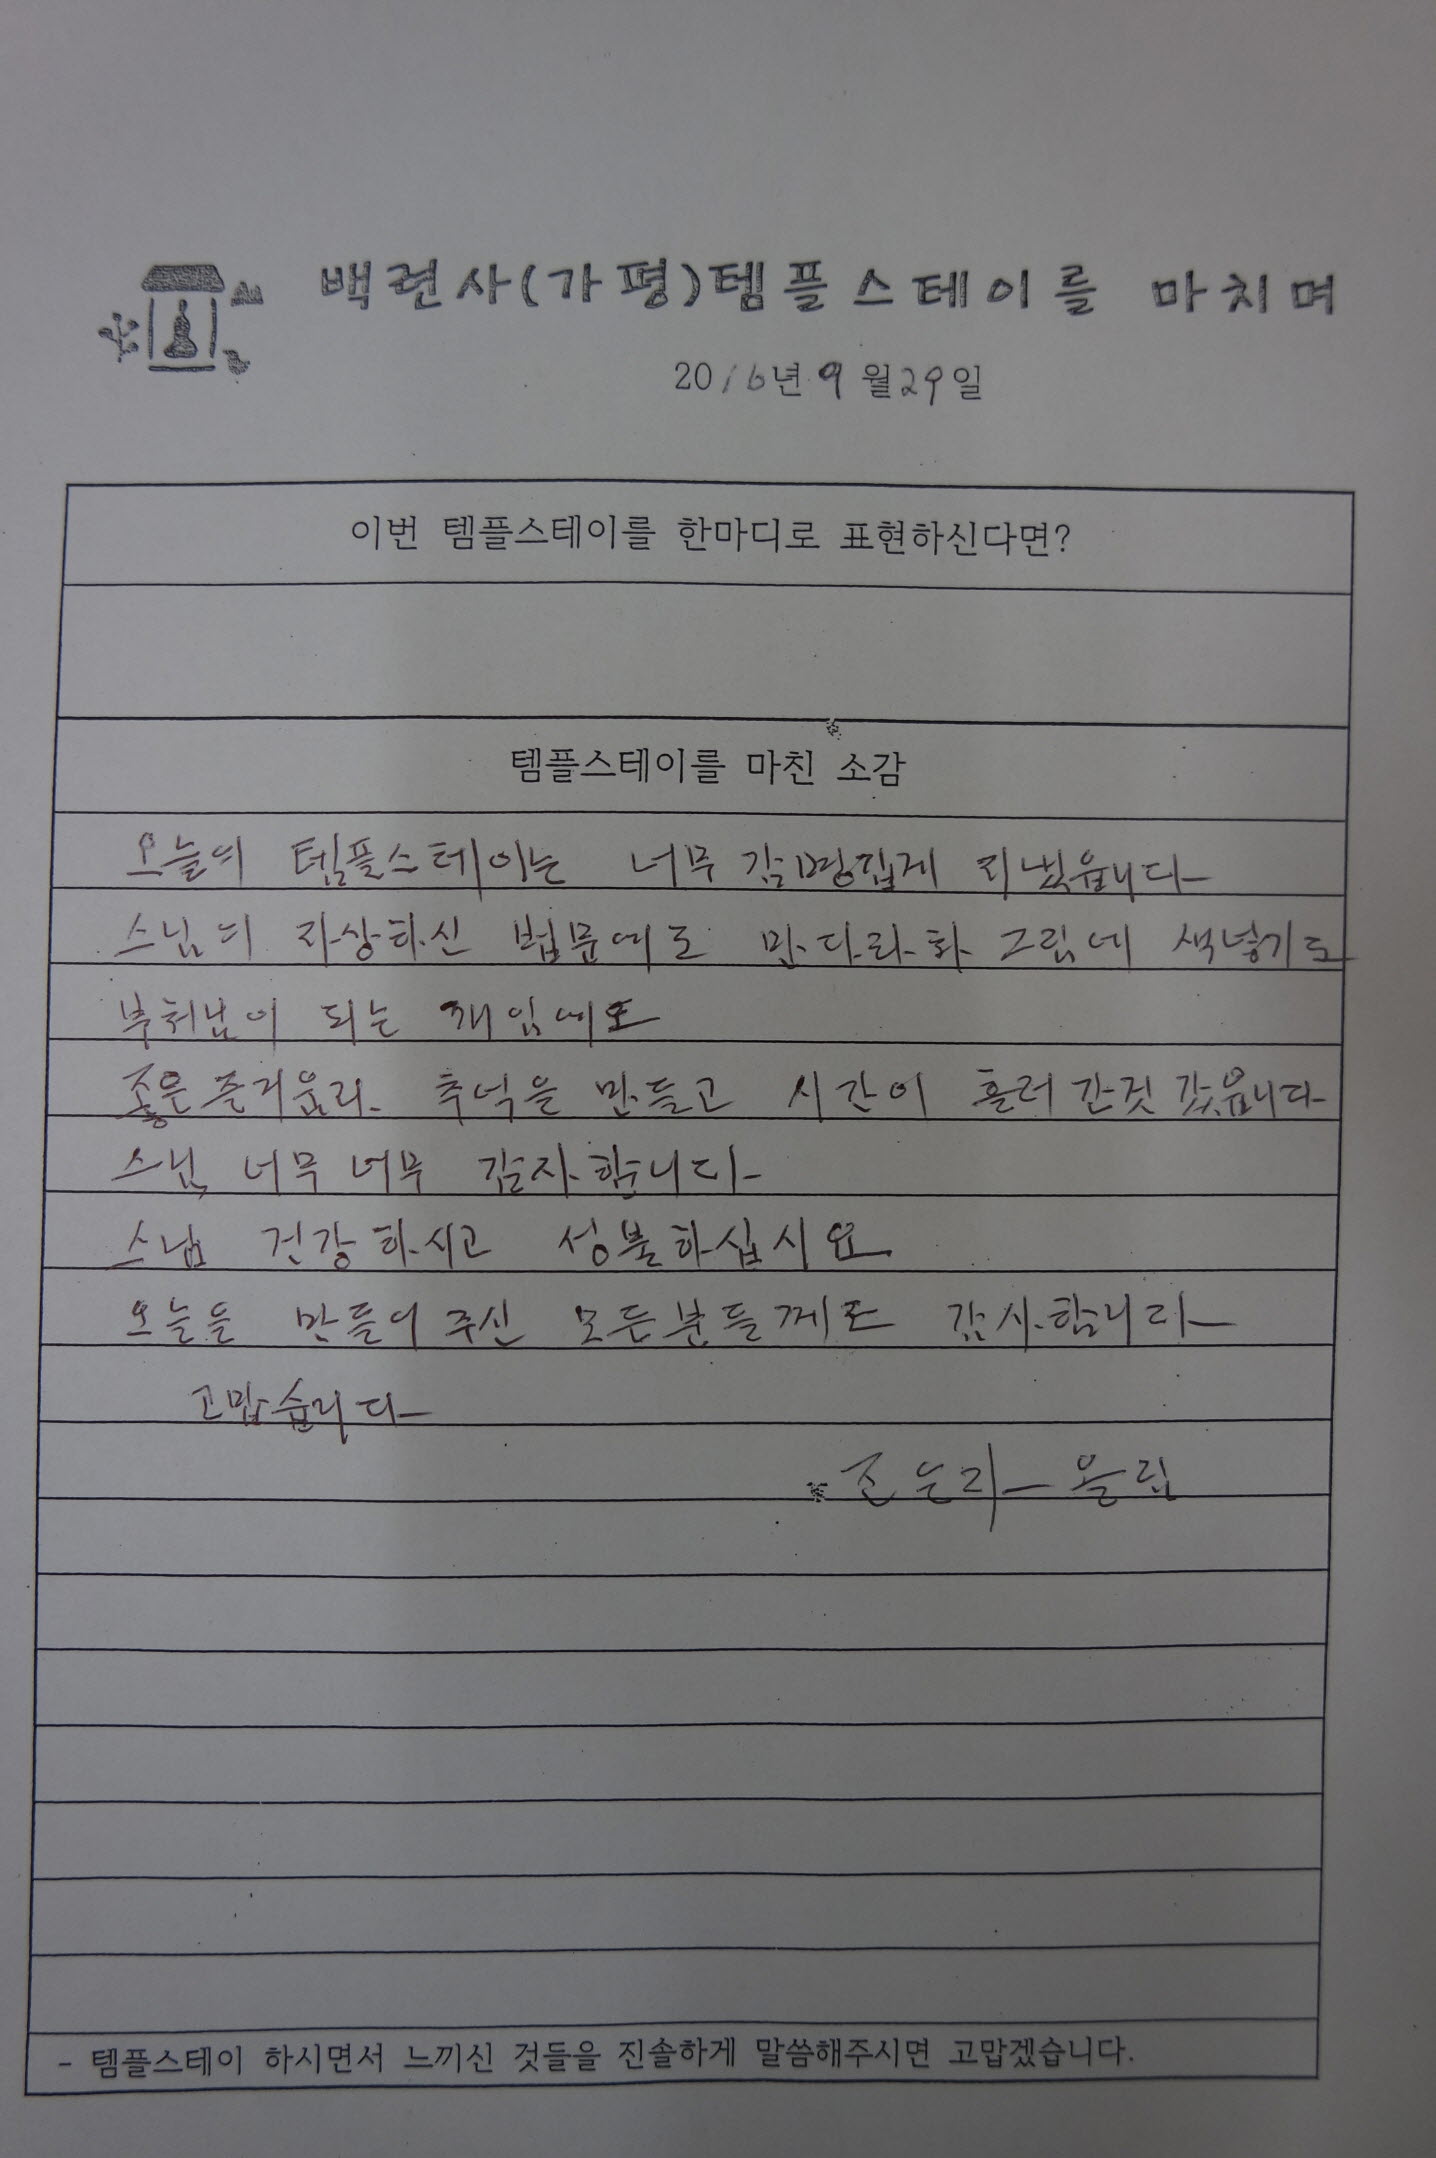 백련사(가평)템플스테이를 마치며
2016년 9월29일
이번 템플스테이를 한마디로 표현하신다면?
템플스테이를 마친 소감
오늘의 템플스테이는 너무 감명깊게 지냈읍니다
스님의 자상하신 법문에도 만다라화 그림에 색넣기도
부처님이 되는 깨임에도
좋은 즐거움과 추억을 만들고 시간이 흘러간것 갔읍니다
스님 너무 너무 감사합니다
스님 건강하시고 성불하십시요
오늘을 만들어 주신 모든분들께도 감사합니다
고맙습니다
올림
- 템플스테이 하시면서 느끼신 것들을 진솔하게 말씀해주시면 고맙겠습니다.